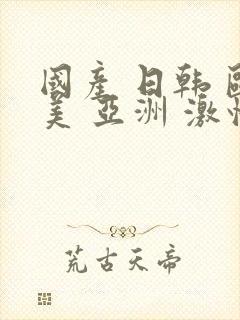 國產 日韩 歐
美 亞洲 激情
荒古天帝